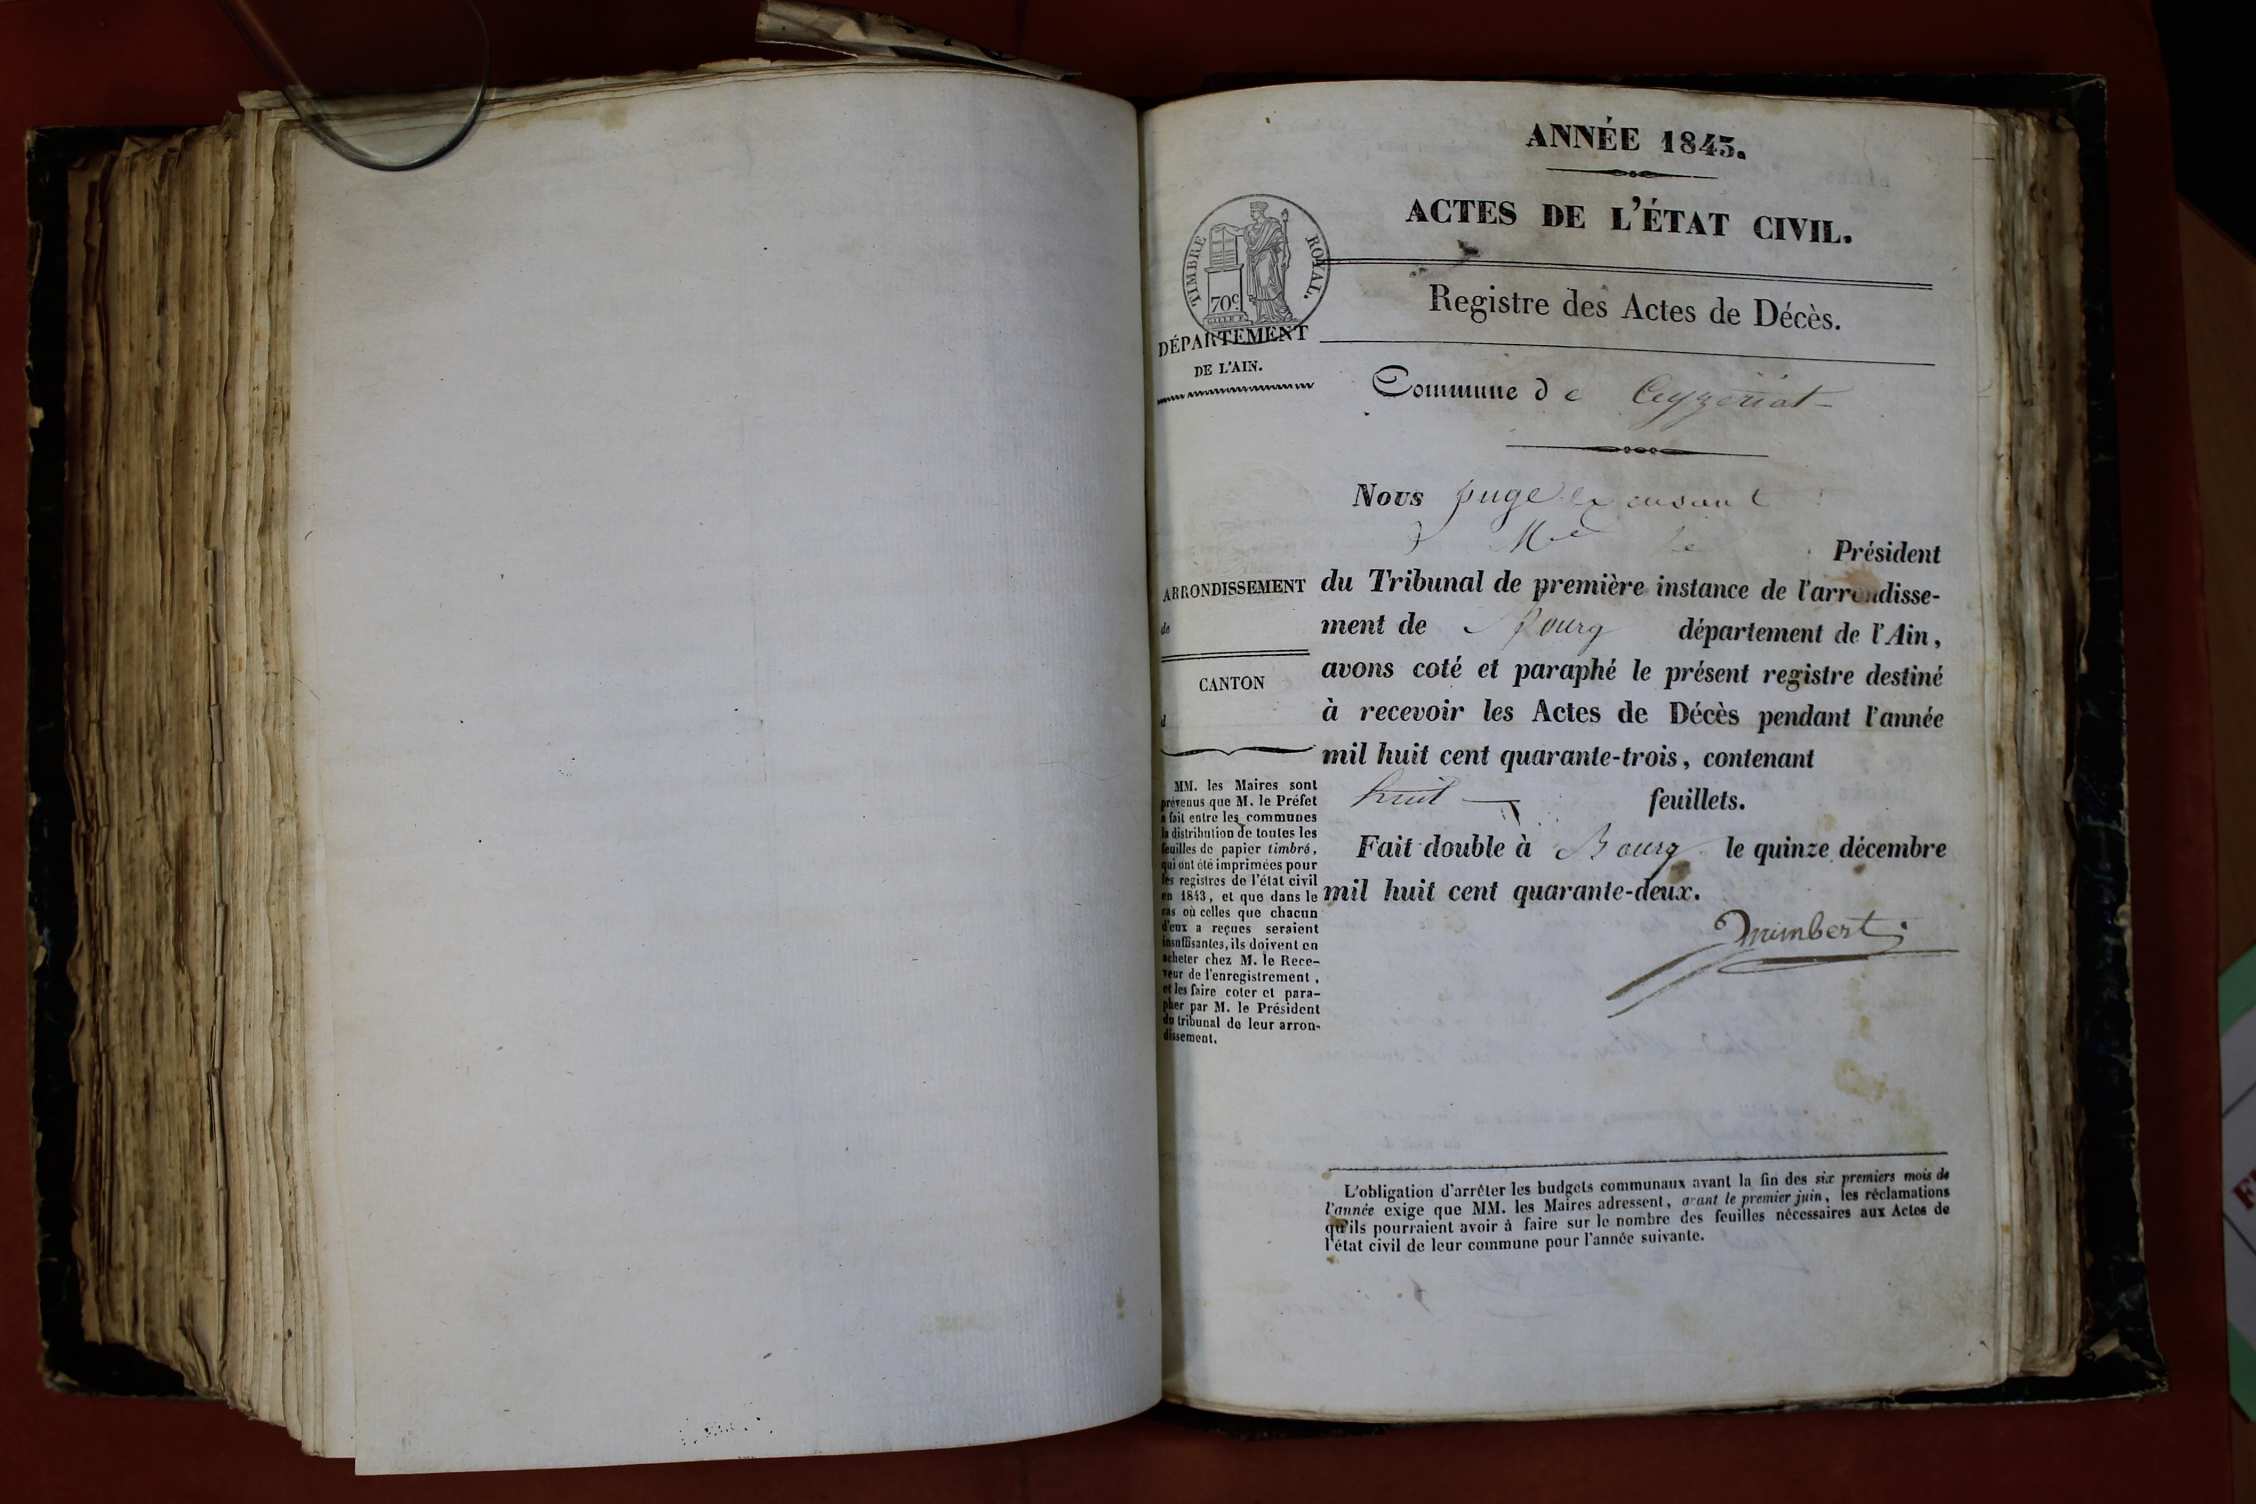 ANNÉE 1843.
ACTES DE L'ÉTAT CIVIL.
TIMBRE ROYAL.
70c
Registre des Actes de Décès.
DÉPARTEMENT
DE L'AIN.
Commune de Ceyzériat
Nous juge excusant
Mr le Président
ARRONDISSEMENT
de
CANTON
d
du Tribunal de première instance de l'arrondisse-
ment de Bourg département de l'Ain,
avons coté et paraphé le présent registre destiné
à recevoir les Actes de Décès pendant l'année
mil huit cent quarante-trois, contenant
huit feuillets.
Fait double à Bourg le quinze décembre
mil huit cent quarante-deux.
MM. les Maires sont
prévenus que M. le Préfet
a fait entre les communes
la distribution de toutes les
feuilles de papier timbré,
qui ont été imprimées pour
les registres de l'état civil
en 1843, et que dans le
cas où celles que chacun
d'eux a reçues seraient
insuffisantes, ils doivent en
acheter chez M. le Rece-
veur de l'enregistrement,
et les faire coter et para-
pher par M. le Président
du tribunal de leur arron-
dissement.
L'obligation d'arrêter les budgets communaux avant la fin des six premiers mois de
l'année exige que MM. les Maires adressent, avant le premier juin, les réclamations
qu'ils pourraient avoir à faire sur le nombre des feuilles nécessaires aux Actes de
l'état civil de leur commune pour l'année suivante.